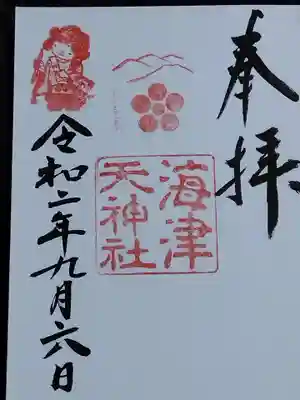 奉拝
海津
天神社
令和二年九月六日